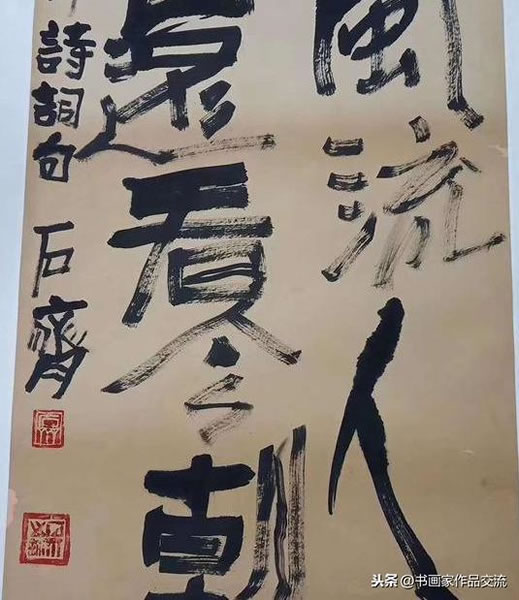 風流人
還看今朝
詩詞句 石齊
头条 @书画家作品交流